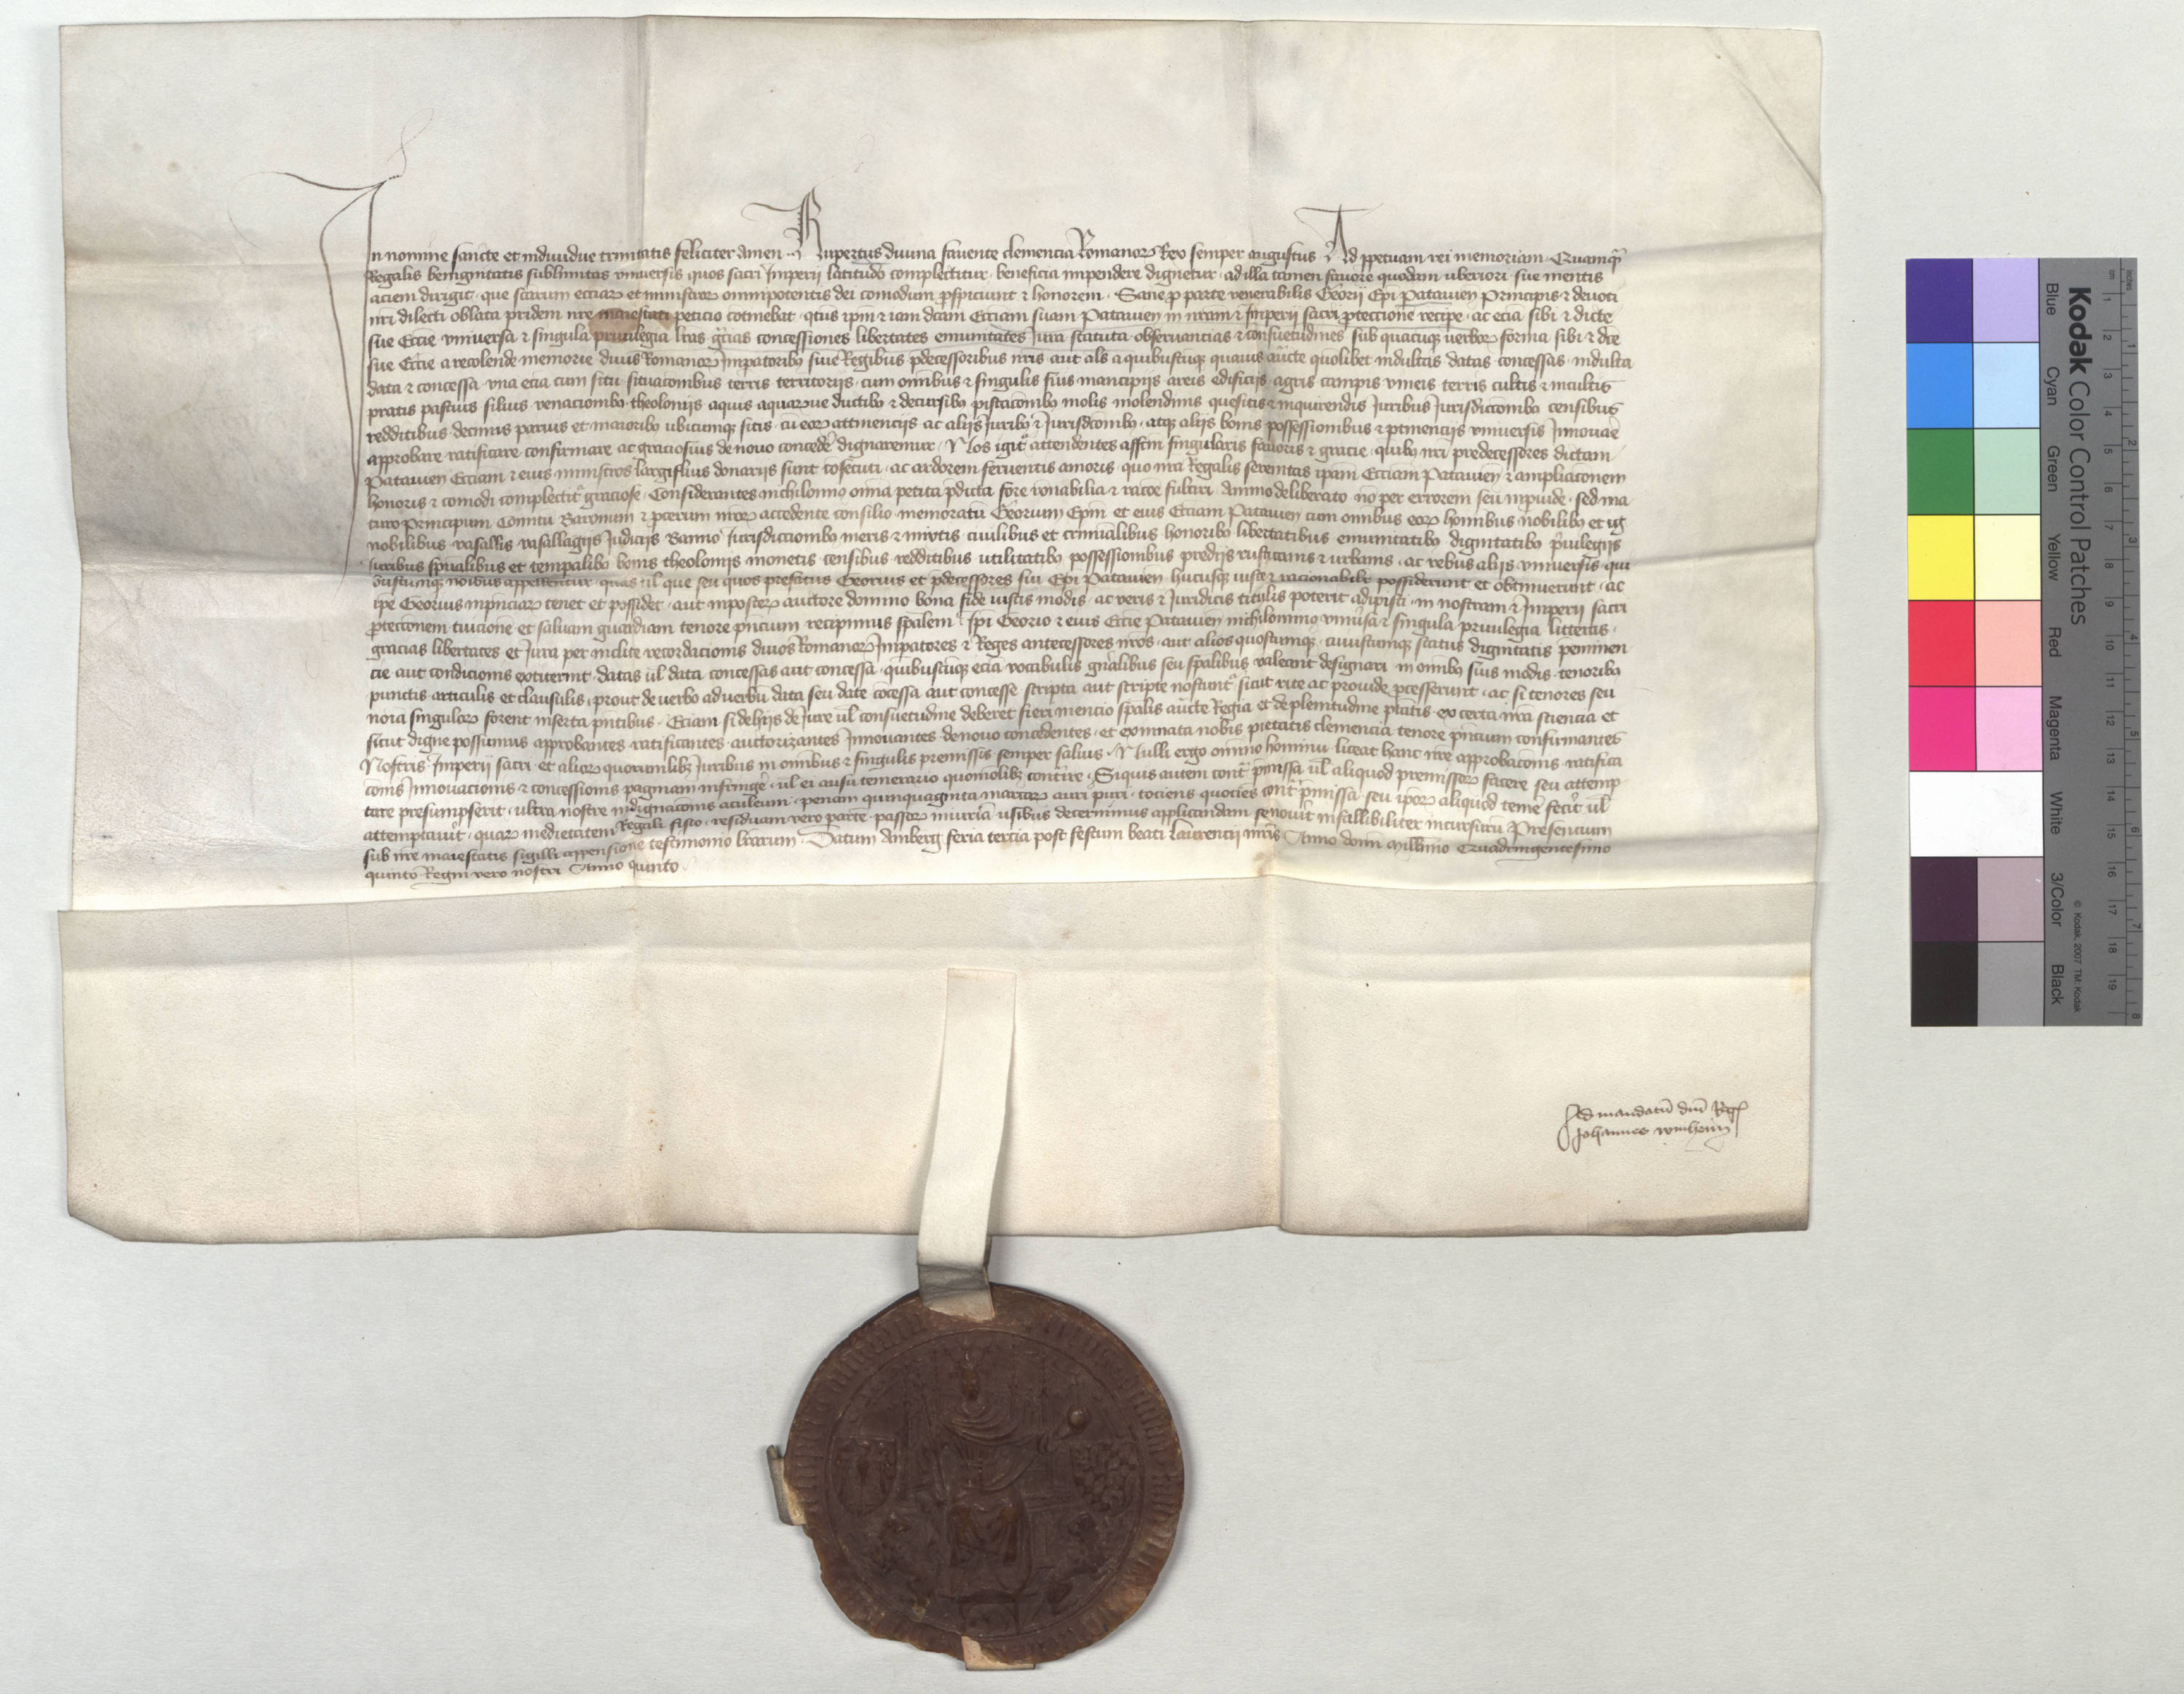 In nomine sancte et individue trinitatis feliciter amen Rupertus divina favente clemencia Romanoꝝ Rex semper augustus Ad ppetuam rei memoriam Quamqᷓ
Regalis benignitatis sublimitas vniuersis quos sacri Imperii latitudo complectitur beneficia impendere dignetur ad illa tamen fauore quodam uberiori sue mentis
aciem dirigit que scarum ecciaꝝ et ministroꝝ omnipotentis dei comodum ꝓspiciunt ⁊ honorem Sane ꝓ parte venerabilis Georij Epi Patauien Principis ⁊ deuoti
nri dilecti oblata pridem nre maiestati peticio cotinebat qtus ipm ⁊ iam dcam Ecciam suam Patauien in nram ⁊ Imperii sacri ꝓteccione recipe ac ecia sibi ⁊ dicte
sue Eccie vniuersa ⁊ singula priuilegia lras gr̄cias concessiones libertates emunitates Iura statuta obseruancias ⁊ consuetudines sub quacuqꝫ verboꝝ forma sibi ⁊ dce
sue Eccie a recolende memorie diuis Romanoꝝ Impatoribꝰ siue Regibus pdecessoribus nris aut als a quibuscuqꝫ quauis aucte quolibet indultas datas concessas indulta
data ⁊ concessa vna ecia cum situ situacombus terris territorijs cum omnibus ⁊ singulis suis mancipijs areis edificijs agris campis vineis terris cultis ⁊ incultis
pratis pascuis siluis venaciombꝰ theolonijs aquis aquaꝝue ductibꝰ ⁊ decursibꝰ piscacombꝰ molis molendinis quesitis ⁊ inquirendis Iuribus Iurisdiccombꝰ censibus
redditibus decimis paruis et maioribꝰ ubicumqꝫ sitis cu eoꝝ attinencijs ac alijs Iuribꝰ ⁊ Iurisdcombꝰ atqꝫ alijs bonis possessionibus ⁊ ptinencijs vniuersis Innouare
approbare ratificare confirmare ac graciosius de nouo concede dignaremur Nos igit attendentes affcm singularis fauoris ⁊ gracie quibꝰ nri predecessores dictam
Patauien Ecciam ⁊ eius ministros largifluis donarijs sunt cosecuti ac ardorem feruentis amoris quo nra Regalis serenitas ipam Ecciam Patauien ⁊ ampliacionem
honoris ⁊ comodi complectit graciose Considerantes nichilomnꝰ omia petita pdicta fore ronabilia ⁊ racoe fulciri Animo deliberato no per errorem seu inpuide sed ma
turo Principum Comitu Baronum ⁊ pcerum nroꝝ accedente consilio memoratu Georium Epm et eius Ecciam Patauien cum omnibus eoꝝ homibus nobilibꝰ et ig
nobilibus vasallis vasallagijs Iudicijs Banno Iurisdiccionibꝰ meris ⁊ mixtis ciuilibus et criminalibus honoribꝰ libertatibus emunitatibꝰ dignitatibꝰ priuilegijs
Iuribus spiualibus et tempalibꝰ bonis theolonijs monetis censibus redditibus utilitatibꝰ possessionibus predijs rusticanis ⁊ urbanis ac rebus alijs vniuersis qui
buscumqꝫ noibus appellentur quas ul que seu quos prefatus Georius et pdecessores sui Epi Patauien hucusqꝫ iuste ⁊ racionabilit possiderunt et obtinuerunt ac
ipe Georius inpnciaꝝ tenet et possidet aut inposteꝝ auctore domino bona fide iustis modis ac veris ⁊ Iuridicis titulis poterit adipisci in nostram ⁊ Imperii sacri
ꝓteccionem tuicione et saluam guardiam tenore pncium recipimus spalem Ipi Georio ⁊ eius Eccie Patauien nichilominꝰ vniusa ⁊ singula priuilegia litteras
gracias libertates et Iura per inclite recordacionis diuos Romanoꝝ Impatores ⁊ Reges antecessores nros aut alios quoscumqꝫ cuiuscumqꝫ status dignitatis peminen
cie aut condicionis extiterint datas ul data concessas aut concessa quibuscuqꝫ ecia vocabulis gnalibus seu spalibus valeant designari in omibꝰ suis modis tenoribꝰ
punctis articulis et clausulis prout de verbo ad verbu data seu date cocessa aut concesse scripta aut scripte noscunt sicut rite ac prouide ꝓcesserunt ac si tenores seu
noia singuloꝝ forent inserta pntibus Eciam si de hijs de Iure ul consuetudine deberet fieri mencio spalis aucte Regia et de plenitudine ptatis ex certa nra sciencia et
sicut digne possumus approbantes ratificantes auctorizantes Innouantes de nouo concedentes et exinnata nobis pietatis clemencia tenore pncium confirmantes
Nostris Imperii sacri et alioꝝ quorumlibꝫ Iuribus in omnibus ⁊ singulis premissis semper saluis Nulli ergo omino hominu liceat hanc nre approbacionis ratifica
conis Innouacionis ⁊ concessionis paginam infringe ul ei ausu temerario quomolibꝫ contire Siquis autem cont pmissa ul aliquod premissoꝝ facere seu attemp
tare presumpserit ultra nostre indignaconis aculeum penam quinquaginta marcaꝝ auri puri tociens quociens cont pmissa seu ipoꝝ aliquod teme fecit ul
attemptauit quaꝝ medietatem Regali fisco residuam vero parte passoꝝ iniuria usibus decernimus applicandam se nouit infallibiliter incursuru Presencium
sub nre maiestatis sigilli appensione testimonio lrarum Datum Amberg feria tercia post festum beati Laurencij mris Anno domi Millmo Quadringentesimo
quinto Regni vero nostri Anno quinto
Ad mandatu dni Regꝭ
Johannes winheim
Kodak Color Control Patches
Blue Cyan Green Yellow Red Magenta White 3/Color Black
© Kodak, 2007 TM: Kodak
cm 1 2 3 4 5 6 7 8 9 10 11 12 13 14 15 16 17 18 19
inches 1 2 3 4 5 6 7 8